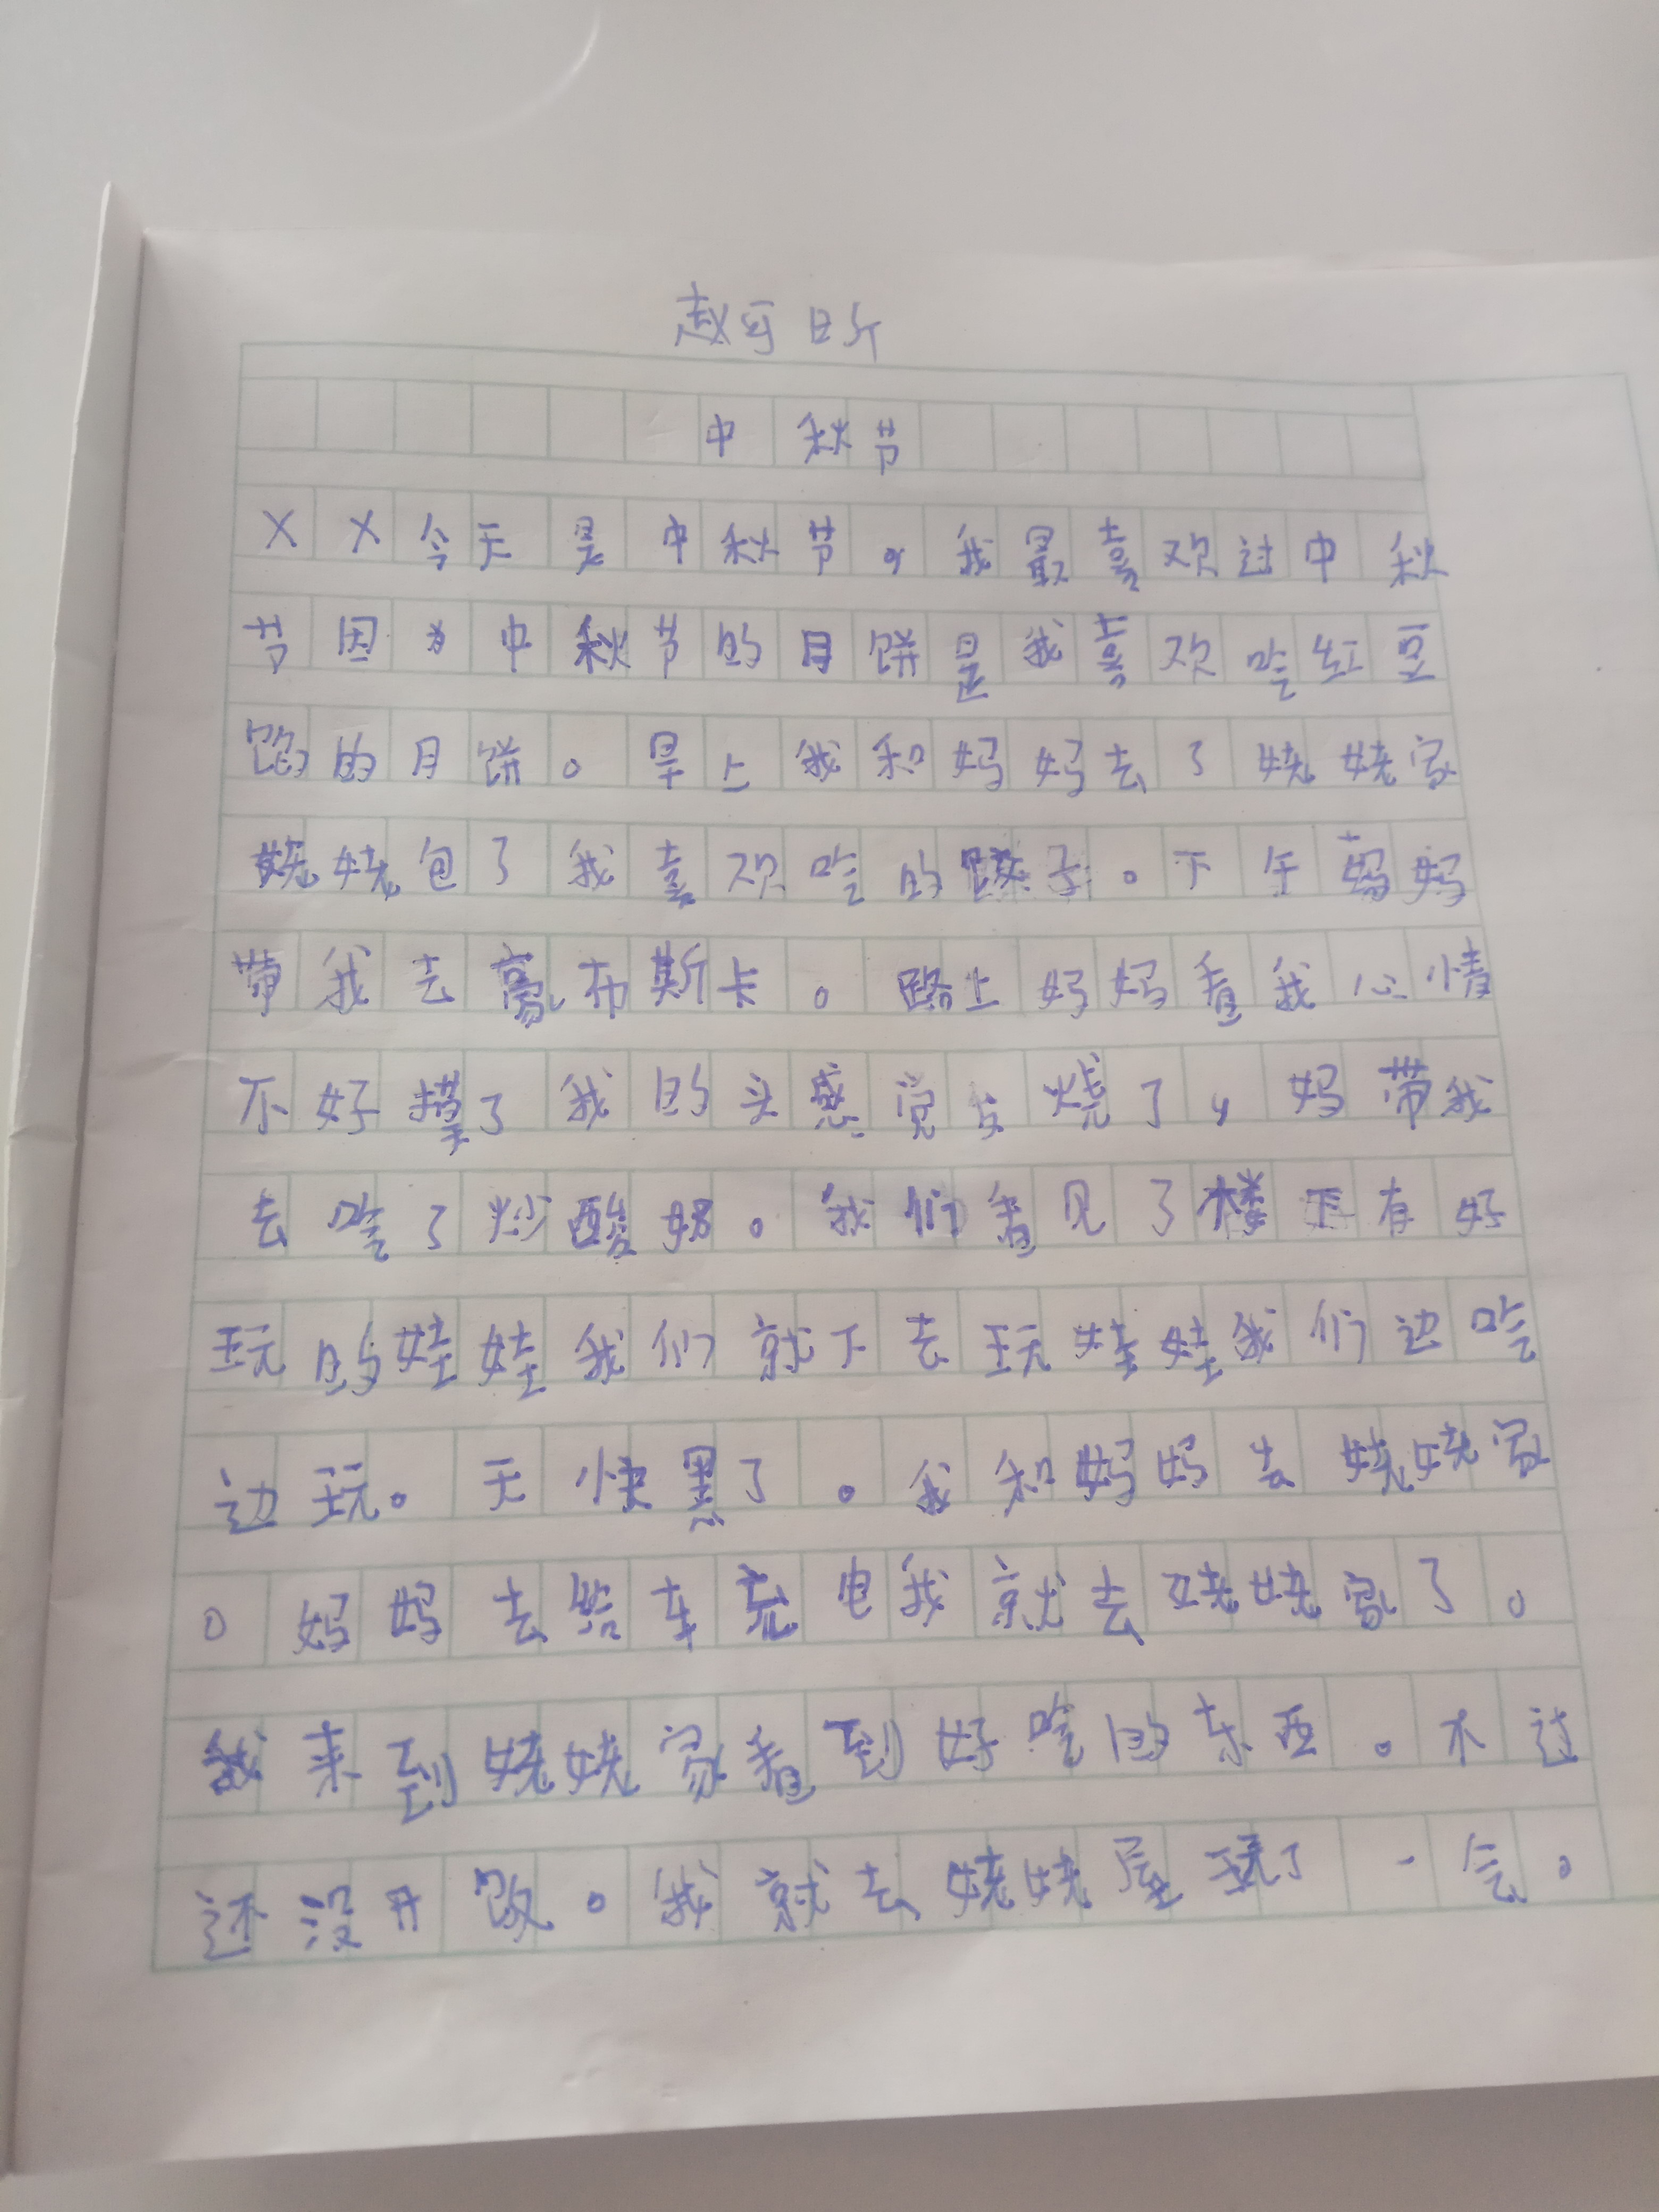 赵可昕
中秋节
XX今天是中秋节，我最喜欢过中秋
节因为中秋节的月饼是我喜欢吃红豆
馅的月饼。早上我和妈妈去了姥姥家
姥姥包了我喜欢吃的饺子。下午妈妈
带我去豪布斯卡。路上妈妈看我心情
不好摸了我的头感觉发烧了，妈带我
去吃了炒酸奶。我们看见了楼下有好
玩的娃娃我们就下去玩娃娃我们边吃
边玩。天快黑了。我和妈妈去姥姥家
。妈妈去给车充电我就去姥姥家了。
我来到姥姥家看到好吃的东西。不过
还没开饭。我就去姥姥屋玩了一会。